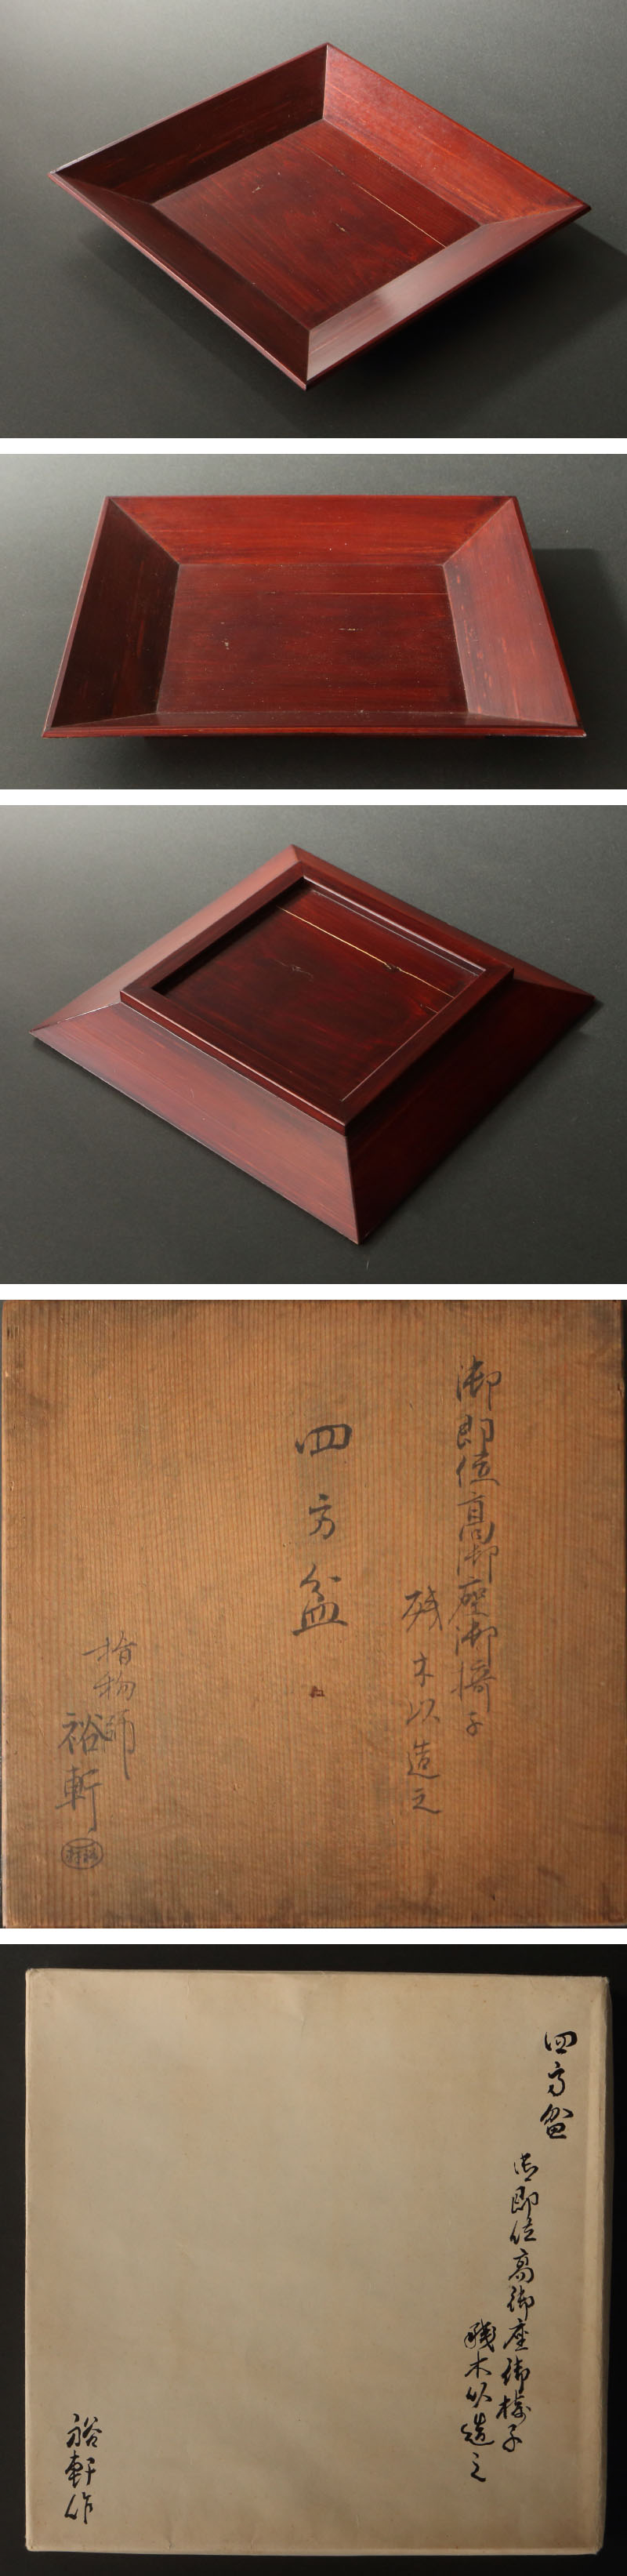 御即位高御座御椅子
残木以造之
四方盆
指物師
裕軒
四方盆
御即位高御座御椅子
残木以造之
裕軒作